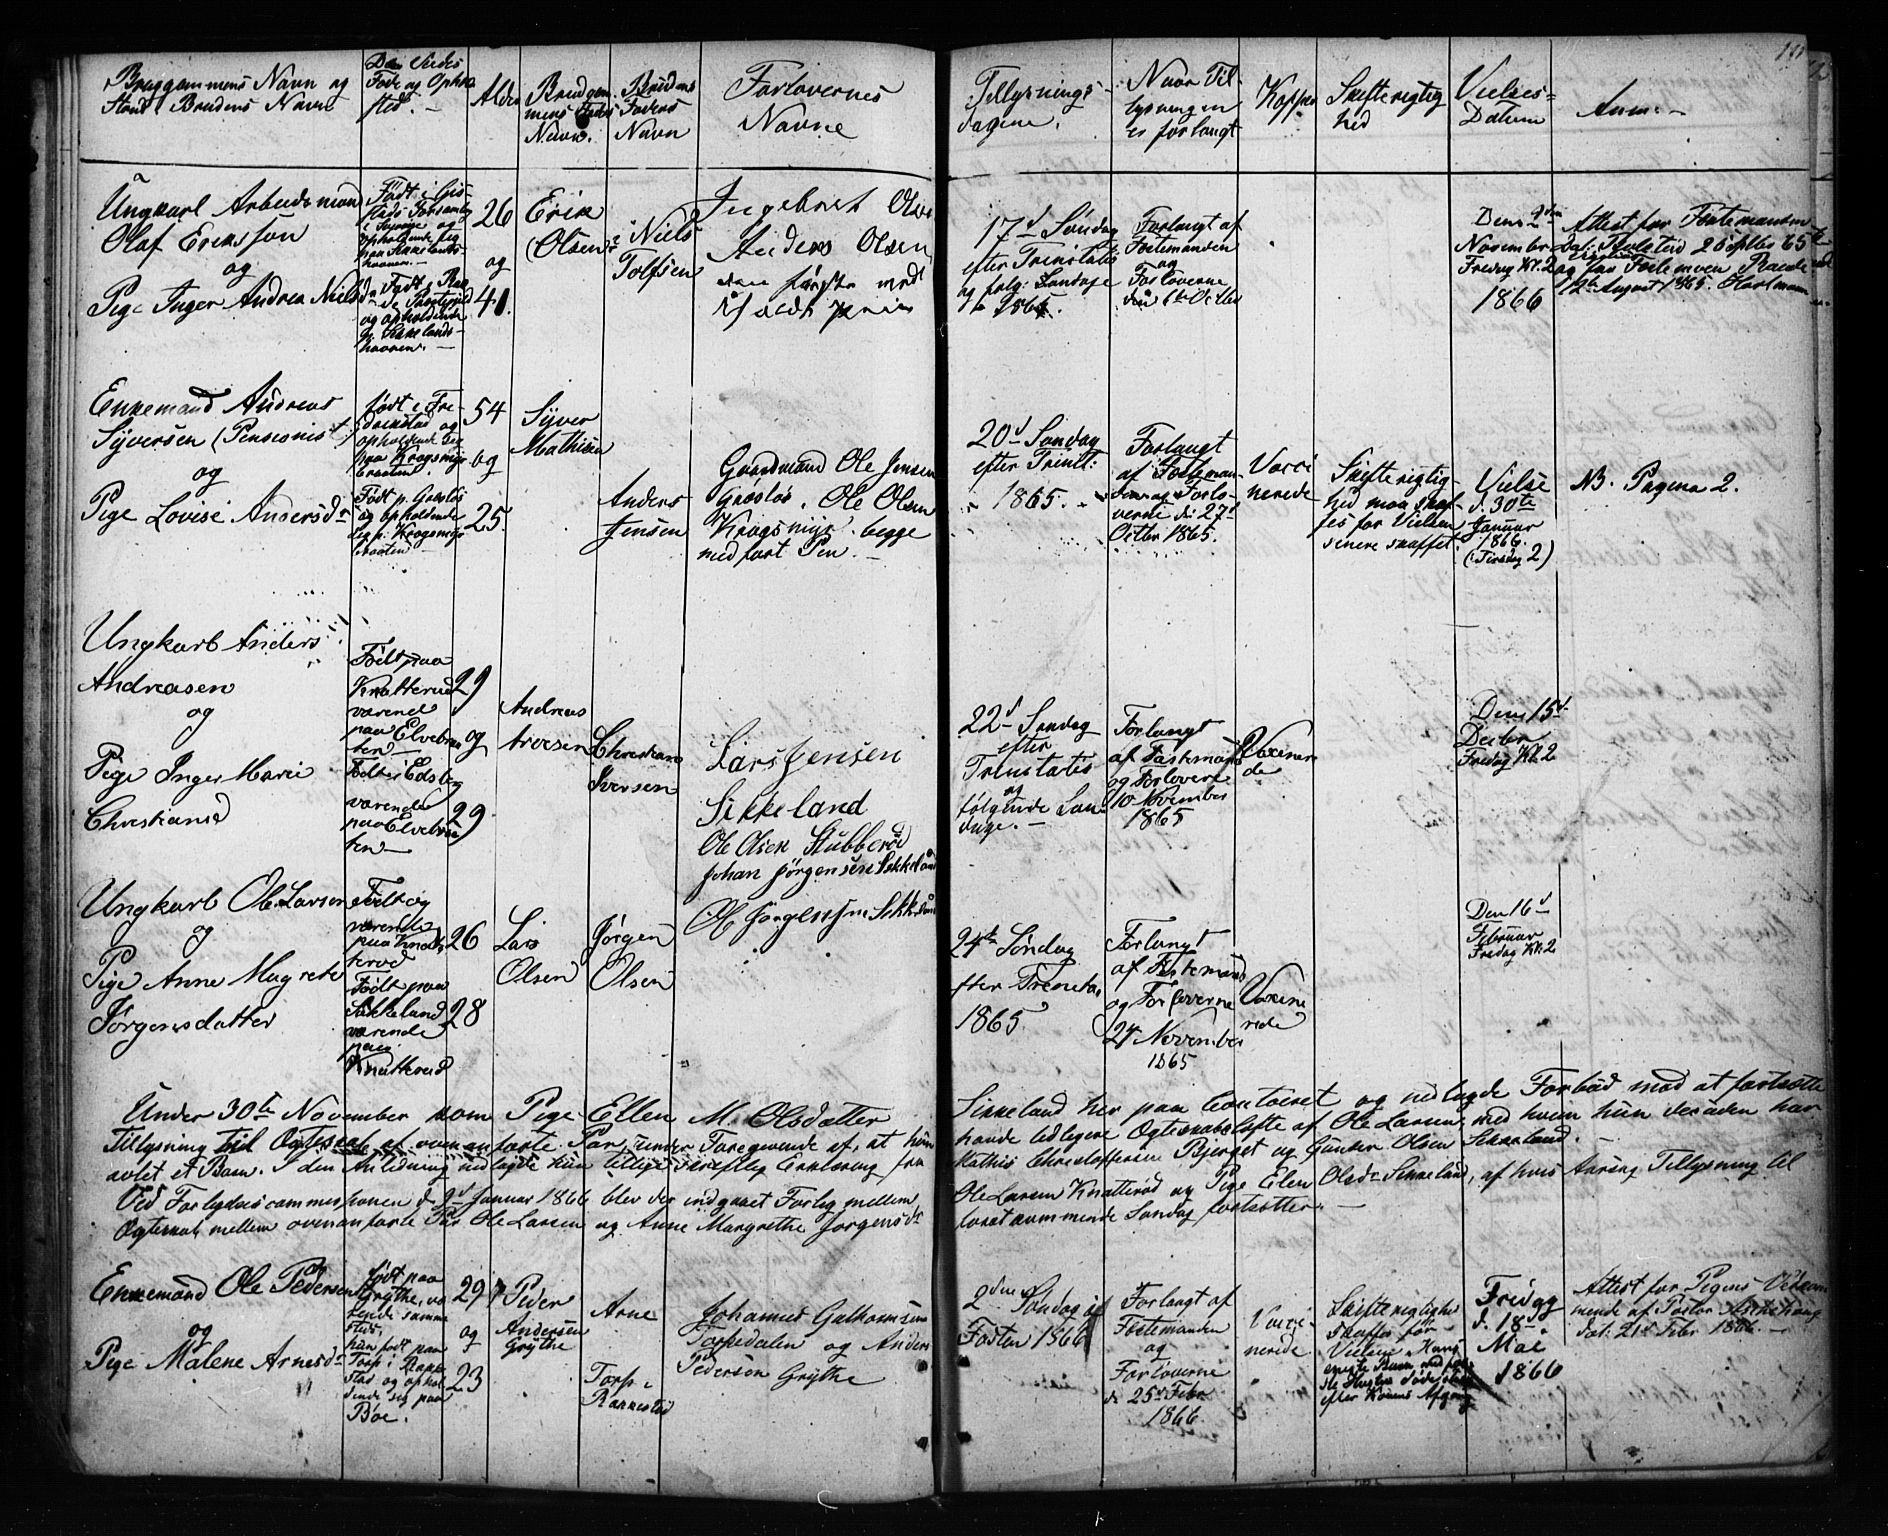 Bruggommens Navn og
Stand. Brudens Navn
Føde og Ophol
sted. —
Alder
Brudgom
mens Faders
Navn.
Brudens
Faders
Navn
Forlovernes
Navne
Tillysnings
dagene.
Naar Til
lysningen
er forlangt
Kopper
Skifterigtig
hed
Vielses=
Datum
Anm: —
Ungkarl Arbeidsmand
Olaf Eriksson
og
Pige Inger Andrea Nielsdr
Født i
og
opholdende sig
Født i
og opholdende
havnen. —
26
og
41.
Erik
(Olsen
Niels
Tolfsen
Ingebret Olsen
Anders Olsen
den første med
iholdt pen
17d Søndag
efter Trinitatis
og følg: Søndage
1865.
Forlangt af
Fæstemanden
og
Forloverne
den 6te Octbr
Den 2den
November
Fredag Kl. 2
1866
Attest for Fæstemanden
dat: 26 Septbr 65
og for Fæstemøen Raade
12te August 1865.
Enkemand Andreas
Syversen (Pensionist)
og
Pige Lovise Andersdr
født i Fre-
drikstad og
opholdende sig
paa Krogsmyr
braaten.
Født p. Græsløs
og opholdende
sig p. Krogsmyr
braaten
54
og
25.
Syver
Mathisen
Anders
Jensen
Gaardmand Ole Jensen
Græsløs. Ole Olsen
Krogsmyr. begge
med ført Pen. —
20d Søndag
efter Trinit:
1865.
Forlangt
af Fæsteman-
den og Forlo-
verne d: 27d
Octbr 1865.
Vacci
nerede
Skifterigtig-
hed maa skaf-
fes før Vielsen
senere skaffet.
Vielse
d. 30te
Januar
1866.
(Tirsdag 2)
NB. Pagina 2.
Ungkarl Anders
Andreasen
og
Pige Inger Marie
Christiansd
Født paa
Knatterud
værend
paa Elvebraa
ten—
Født i Edsberg
værende
paa Elvebraa
ten—
29
og
29
Andreas
Iversen
Christians
Iversen
Lars Jensen
Sikkeland
Ole Olsen Stubberød
Johan Jørgensen Sikkeland
22d Søndag
efter
Trinitatis
og
følgende Søn
dage. —
Forlangt
af Fæstemand
og Forlovere
10 November
1865
Vaxinere
de
Den 15d
Decbr
Fredag Kl. 2
Ungkarl Ole Larsen
og
Pige Anne Magrete
Jørgensdatter
Født og
værende
paa Knat
terød
Født paa
Sikkeland
værende
paa
Knatterud
26
28
Lars
Olsen
Jørgen
Olsen
Ole Jørgensen Sikkeland
24te Søndag
efter Trinita.
1865
Forlangt
af Fæstemand
og Forloverne
24 November
1865
Vaxine
rede
Den 16d
Februar
Fredag Kl. 2
Under 30te November kom Pige Ellen M. Olsdatter Sikkeland her paa Contoiret og nedlagde Forbud mod at fortsætte
Tillysning til Ægteskab af ovenanførte Par, under Foregivende af, at hun havde tidligere Ægteskabsløfte af Ole Larsen, med hvem hun desuden har
avlet et Barn. I den Anledning nedlagde hun tillige skriftlig Erklæring fra Mathis Christophersen Bjerget og Gunder Olsen Sikkeland. —
Ved Forligelsescommissionen d. 2d Januar 1866 blev der indgaaet Forlig mellem Ole Larsen Knatterød og Pige Elen Olsdr Sikkeland, af hvis Aarsag Tillysning til
Ægteskab mellem ovenanførte Par Ole Larsen og Anne Margrethe Jørgensdr førstkommende Søndag fortsættes. —
Enkemand Ole Pedersen
og
Pige Malene Arnesdr
født paa
Grythe, væ
rende samme
steds.
hun født paa
Torp i Rakke
stad og ophol
dende sig paa
Boe.
29
og
23
Peder
Andersen
Grythe
Arne
Torp i
Rakkestad
Johannes Guthormsen
Torpedalen og Anders
Pedersen Grythe
2den Søndag i
Fasten 1866
Forlangt af
Fæstemanden
og
Forloverne
d. 25de Febr
1866
Vacci-
nerede
Skifterigtighed
skaffes før
Vielsen. Hans
eneste Barn
efter Konens Afgang
Fredag
d. 18de
Mai
1866
Attest for Pigens Vedkom
mende af Pastor
dat. 21de Febr 1866. —